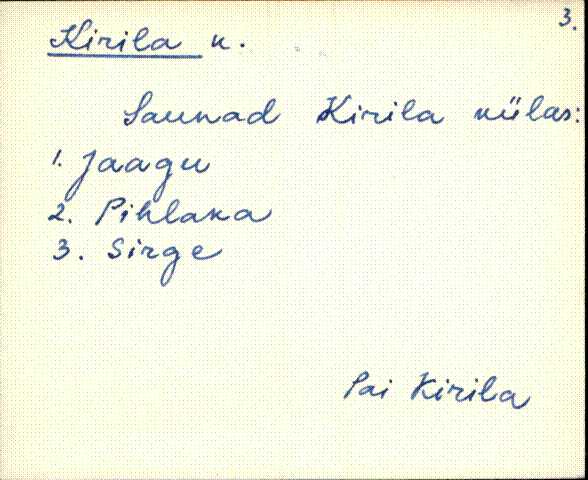 3.
Kirila k.
Saunad Kirila külas:
1. Jaagu
2. Pihlaka
3. Sirge
Pai Kirila